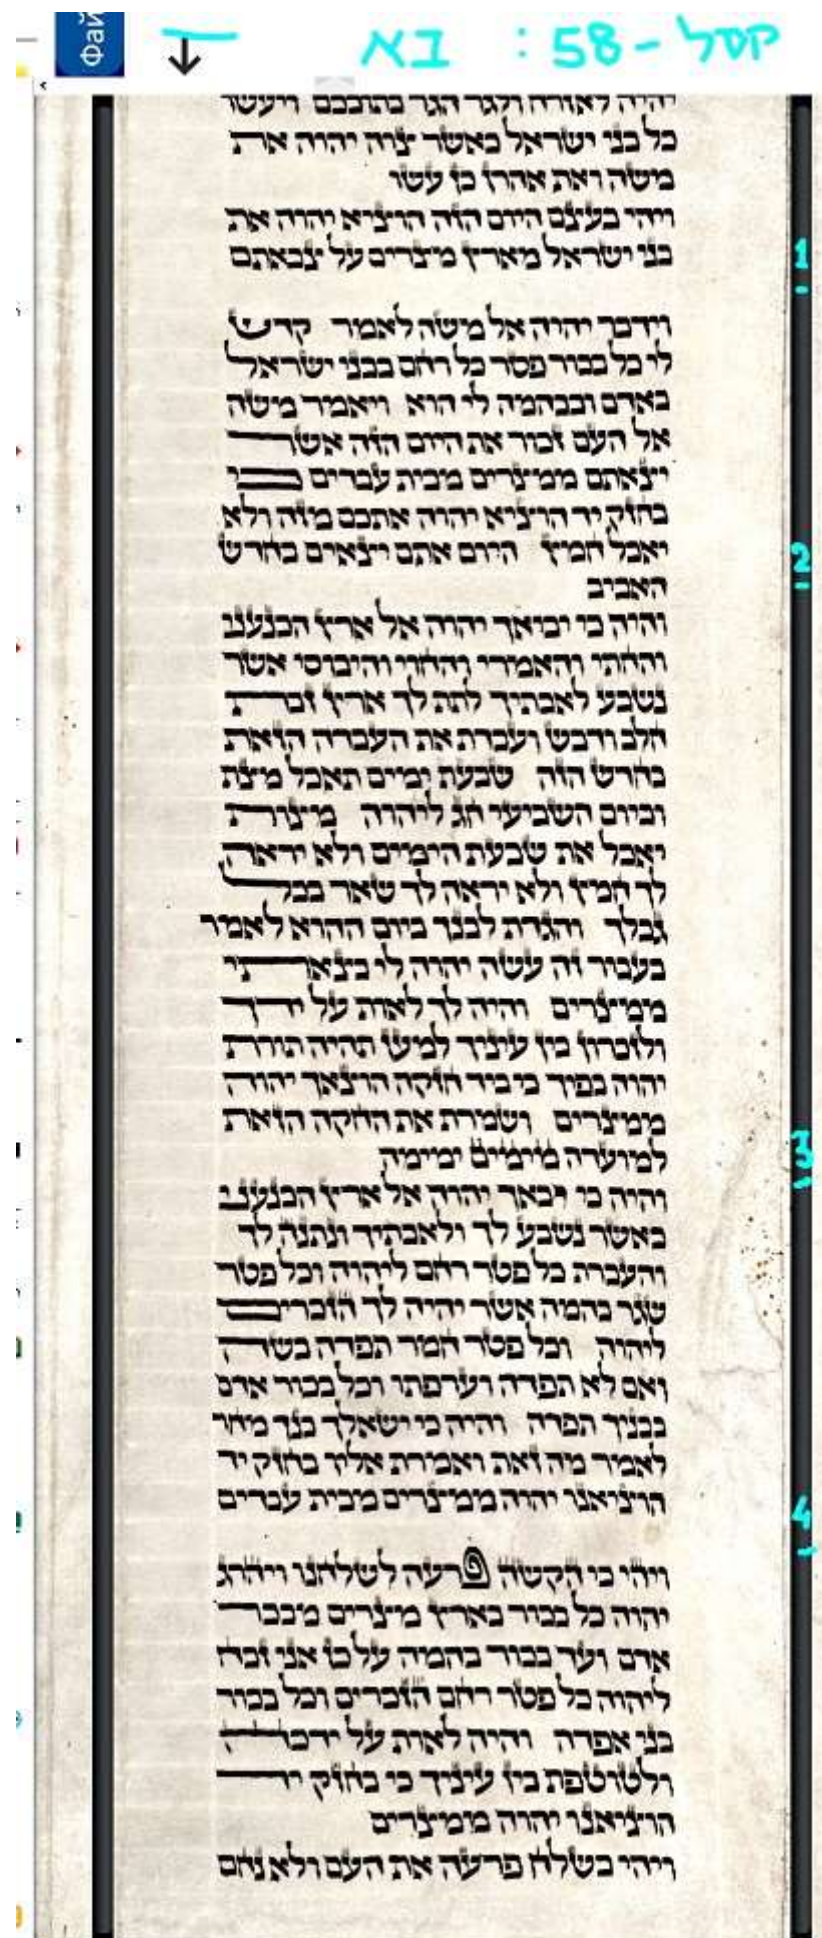 Фай
קסל - 58 : בא
יהיה לאזרח ולגר הגר בתוככם ויעשו
כל בני ישראל כאשר צוה יהוה את
משה ואת אהרן כן עשו
ויהי בעצם היום הזה הוציא יהוה את
בני ישראל מארץ מצרים על צבאתם
1
וידבר יהוה אל משה לאמר קדש
לי כל בכור פטר כל רחם בבני ישראל
באדם ובבהמה לי הוא ויאמר משה
אל העם זכור את היום הזה אשר
יצאתם ממצרים מבית עבדים כי
בחזק יד הוציא יהוה אתכם מזה ולא
יאכל חמץ היום אתם יצאים בחדש
2
האביב
והיה כי יביאך יהוה אל ארץ הכנעני
והחתי והאמרי והחוי והיבוסי אשר
נשבע לאבתיך לתת לך ארץ זבת
חלב ודבש ועבדת את העבדה הזאת
בחדש הזה שבעת ימים תאכל מצת
וביום השביעי חג ליהוה מצות
יאכל את שבעת הימים ולא יראה
לך חמץ ולא יראה לך שאר בכל
גבלך והגדת לבנך ביום ההוא לאמר
בעבור זה עשה יהוה לי בצאתי
ממצרים והיה לך לאות על ידך
ולזכרון בין עיניך למען תהיה תורת
יהוה בפיך כי ביד חזקה הוצאך יהוה
ממצרים ושמרת את החקה הזאת
למועדה מימים ימימה
3
והיה כי יבאך יהוה אל ארץ הכנעני
כאשר נשבע לך ולאבתיך ונתנה לך
והעברת כל פטר רחם ליהוה וכל פטר
שגר בהמה אשר יהיה לך הזכרים
ליהוה וכל פטר חמר תפדה בשה
ואם לא תפדה וערפתו וכל בכור אדם
בבניך תפדה והיה כי ישאלך בנך מחר
לאמר מה זאת ואמרת אליו בחזק יד
הוציאנו יהוה ממצרים מבית עבדים
4
ויהי כי הקשה פרעה לשלחנו ויהרג
יהוה כל בכור בארץ מצרים מבכר
אדם ועד בכור בהמה על כן אני זבח
ליהוה כל פטר רחם הזכרים וכל בכור
בני אפדה והיה לאות על ידכה
ולטוטפת בין עיניך כי בחזק יד
הוציאנו יהוה ממצרים
ויהי בשלח פרעה את העם ולא נחם